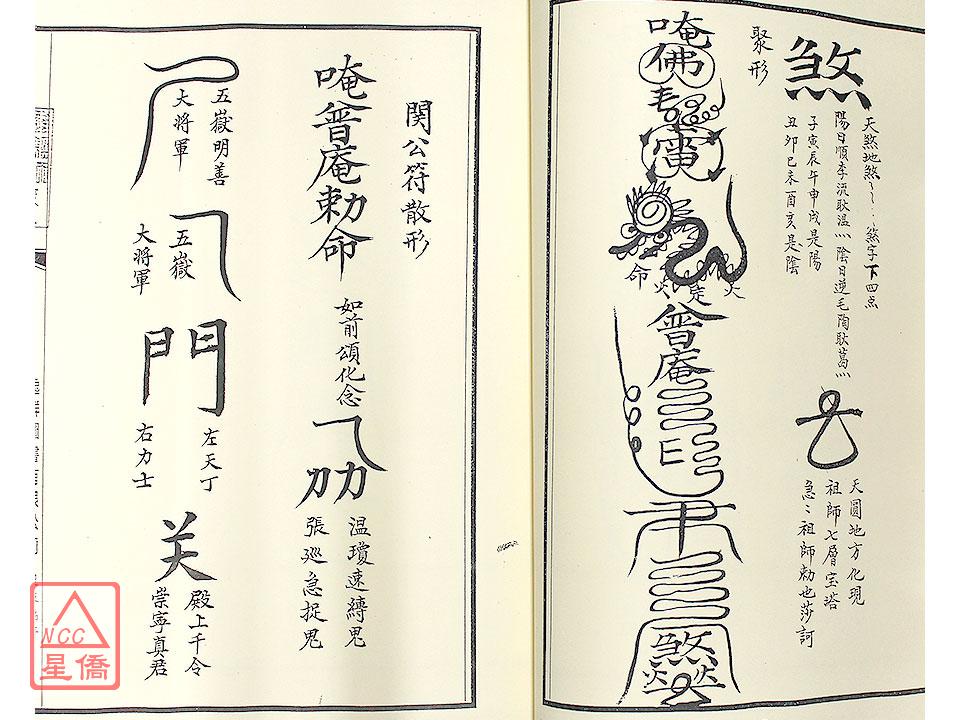 煞
天煞地煞〻〻：煞字下四点
陽日順季流耿温灬陰日逆毛陶耿葛灬
子寅辰午申戌是陽
丑卯巳未酉亥是陰
天圓地方化現
祖師七層宝塔
急〻祖師勅也莎訶
聚形
唵
佛
毛
雷
命
火
火
普庵
煞
火
火
関公符散形
唵普庵勅命
如前頌化念
温瓊速縛鬼
張巡急捉鬼
五嶽明善
大将軍
五嶽
大将軍
門
左天丁
右力士
关
殿上千令
崇寧真君
NCC
星僑